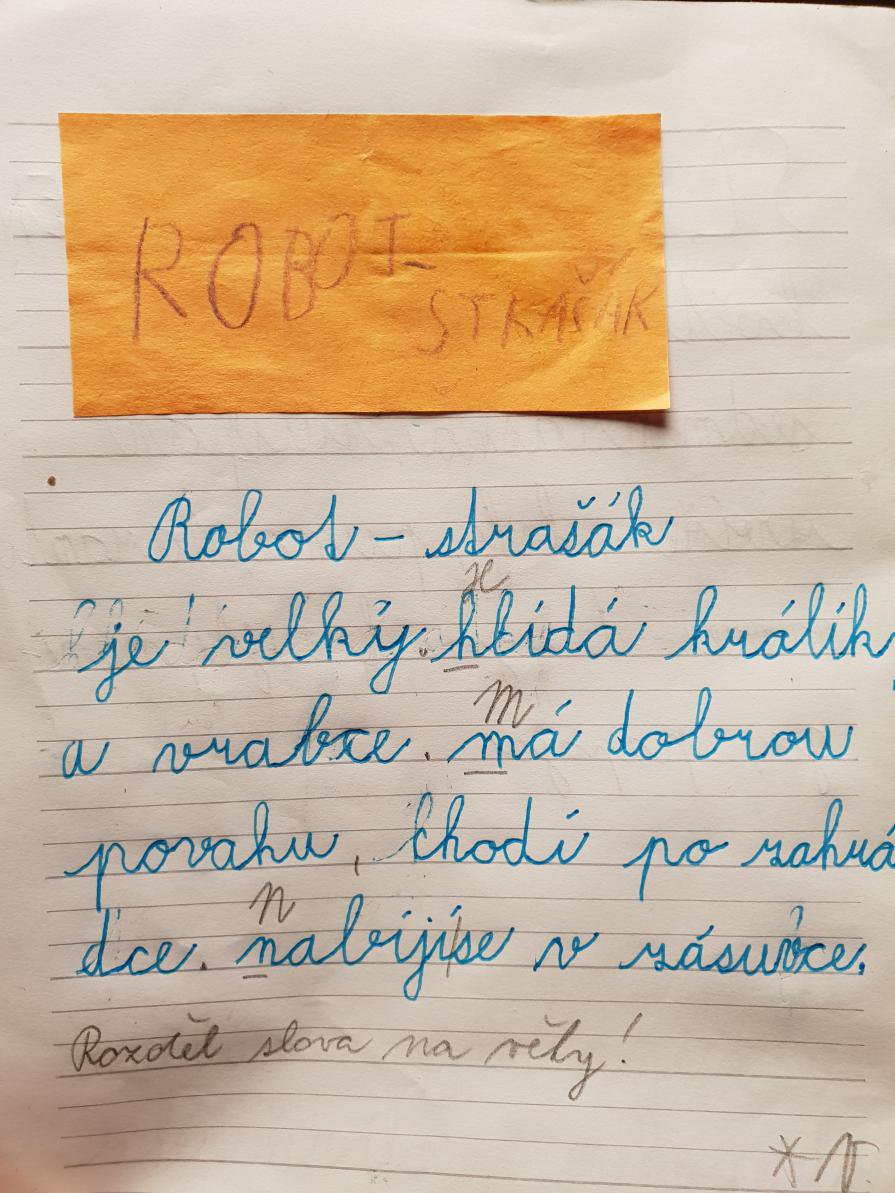 ROBOT-
STRAŠÁK
Robot - strašák
H
je velký. hlídá králík
M
a vrabce. má dobrou
povahu, chodí po zahrá
n
dce. nabíjí|se v zásuvce.
Rozděl slova na věty!